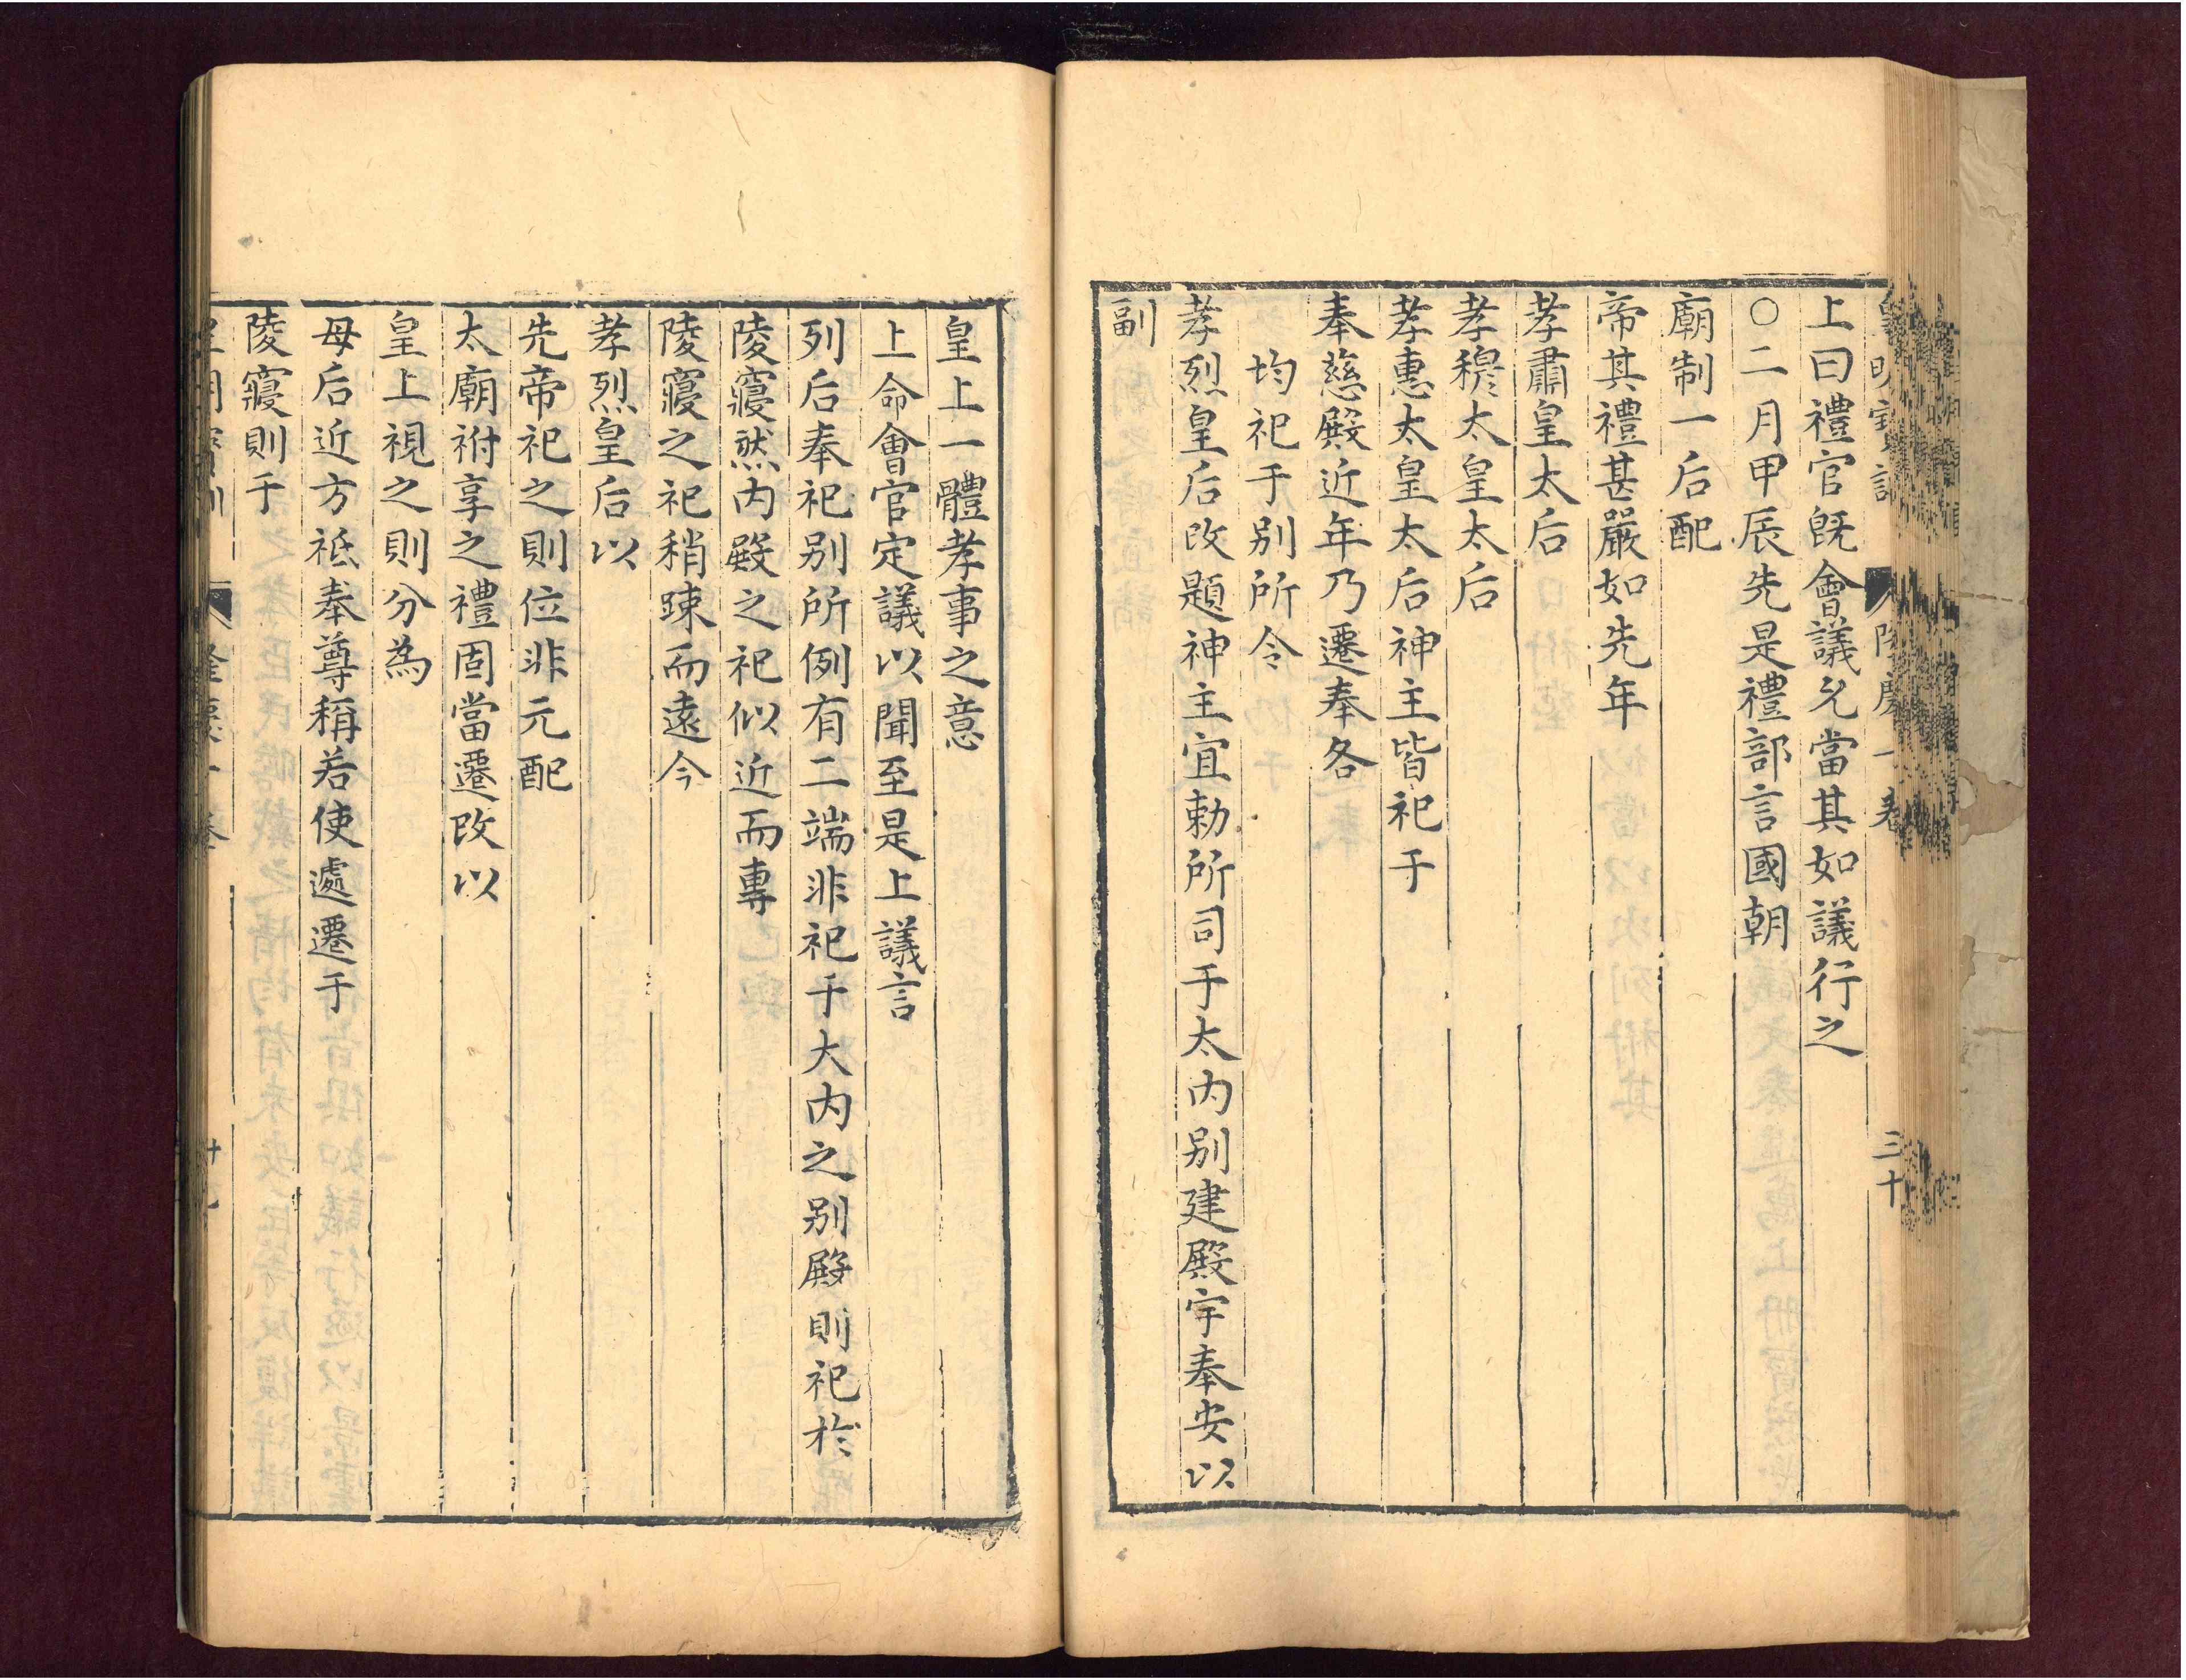 皇明寶訓 隆慶一卷 三十
上曰禮官旣會議允當其如議行之
○二月甲辰先是禮部言國朝
廟制一后配
帝其禮甚嚴如先年
孝肅皇太后
孝穆太皇太后
孝惠太皇太后神主皆祀于
奉慈殿近年乃遷奉各
均祀于别所令
孝烈皇后改題神主宜勅所司于太内别建殿宇奉安以
副
皇上一體孝事之意
上命會官定議以聞至是上議言
列后奉祀别所例有二端非祀于大内之别殿則祀於
陵寢然内殿之祀似近而專
陵寢之祀稍踈而遠今
孝烈皇后以
先帝祀之則位非元配
太廟祔享之禮固當遷改以
皇上視之則分為
母后近方祗奉尊稱若使處遷于
陵寢則于
皇明寶訓 隆慶一卷 廿九